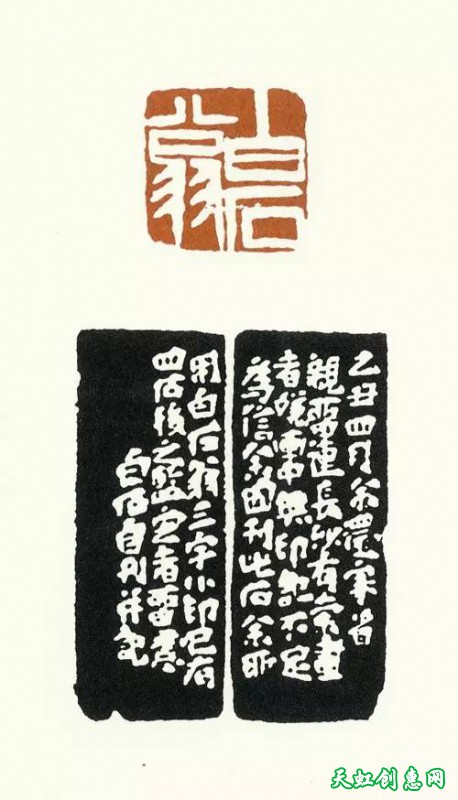 白石翁
乙丑四月余還家省
親長沙有畫
者無印恐不足
為信余因刊此石余所
用白石翁三字小印已有
四石後之鑒定者留意
白石自刊并記
天虹创意网